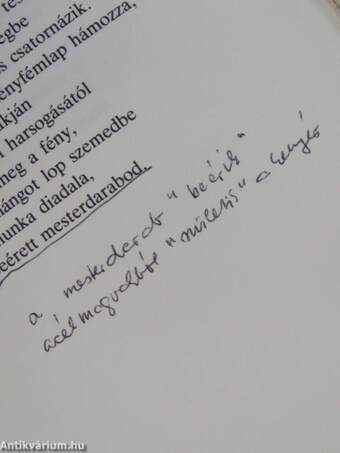 tes
egbe
s csatornázik.
ényfémlap hámozza,
kján
harsogásától
meg a fény,
lángot lop szemedbe
munka diadala,
eérett mesterdarabod.
a mesterdarab "beérik"
"születés" a
Antikvárium.hu